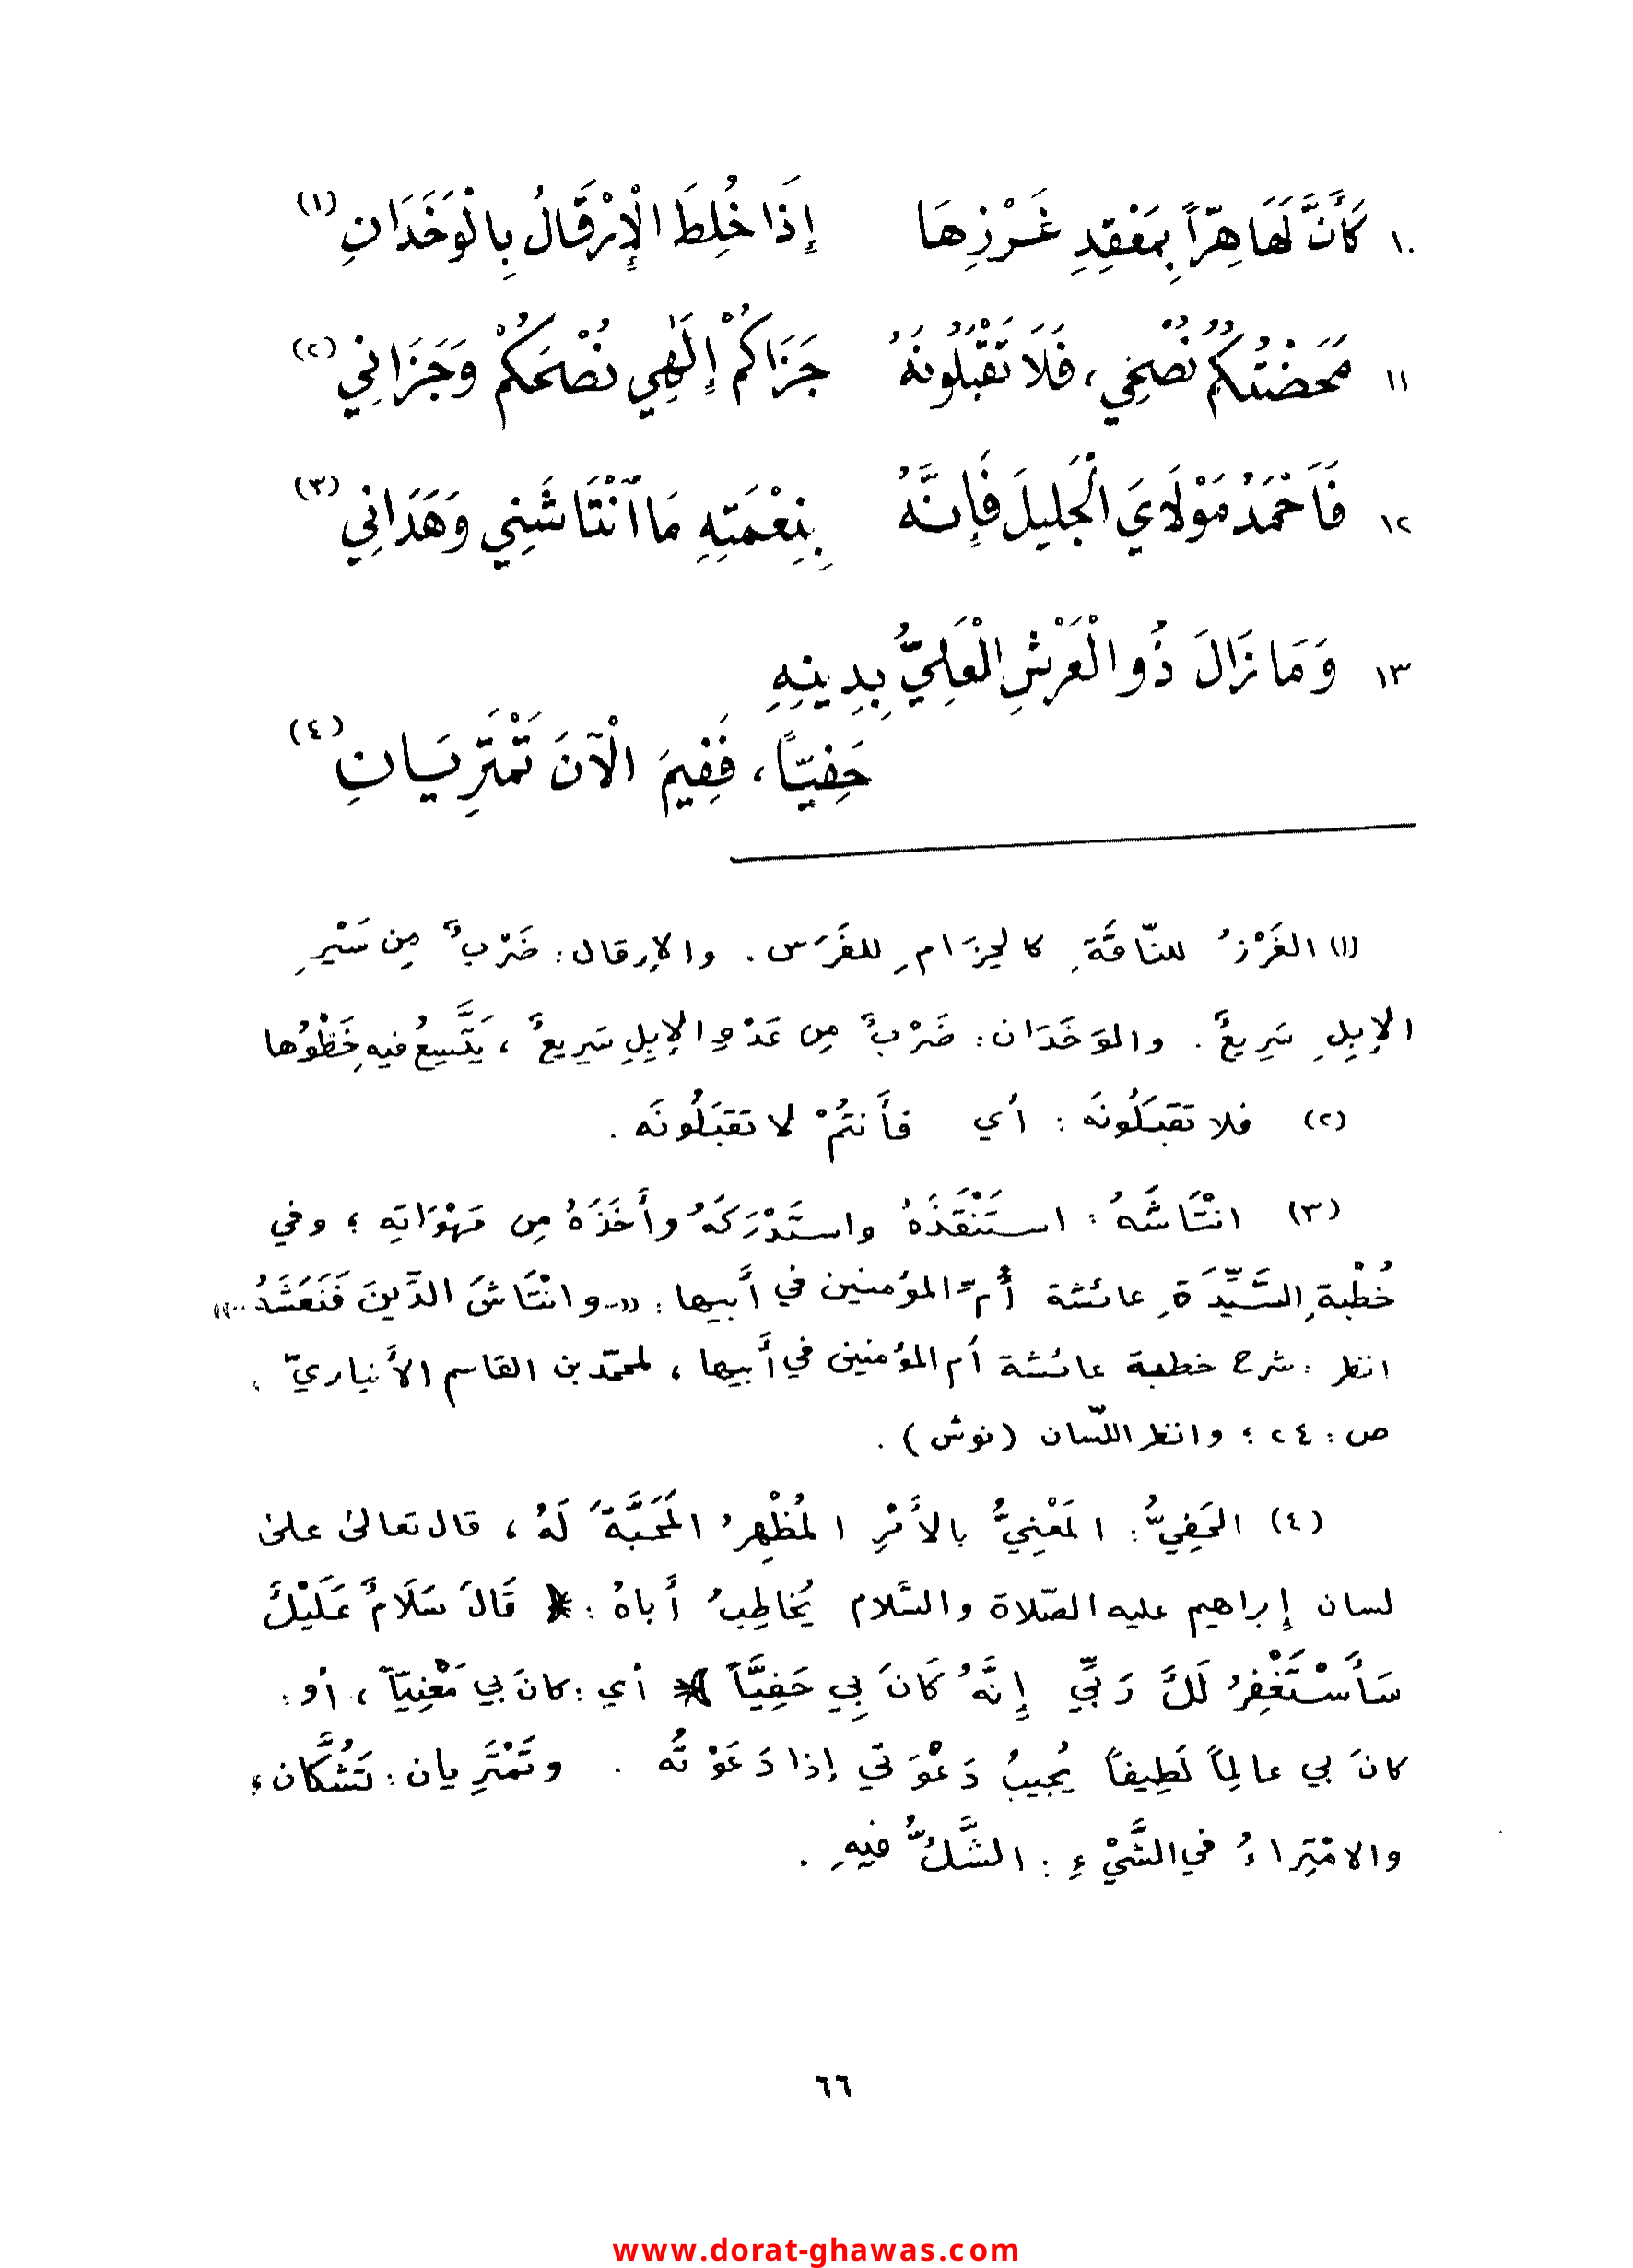 ١٠ كَأَنَّ لَهَا هِرّاً بِمَعْقِدِ غَرْزِهَا إِذَا خُلِطَ الْإِرْقَالُ بِالْوَخَدَانِ (١)
١١ مَحَضْتُكُمُ نُصْحِي، فَلَا تَقْبَلُونَهُ جَزَاكُمْ إِلٰهِي نُصْحَكُمْ وَجَزَانِي (٢)
١٢ فَاَحْمَدُ مَوْلَايَ الْجَلِيلَ فَإِنَّهُ بِنِعْمَتِهِ مَا انْتَاشَنِي وَهَدَانِي (٣)
١٣ وَمَا زَالَ ذُو الْعَرْشِ الْعَلِيُّ بِدِينِهِ
حَفِيّاً، فَفِيمَ الْآنَ تَمْتَرِيَانِ (٤)
(١) الغَرْزُ للنّاقَةِ كالحِزَامِ للفَرَس. والإرقال: ضَرْبٌ مِن سَيْرِ
الإبِلِ سَرِيعٌ. والوَخَدَان: ضَرْبٌ مِن عَدْوِ الإبِلِ سَرِيعٌ، يَتَّسِعُ فيه خَطْوُها
(٢) فلا تقبَلُونَه: أي فأَنتُمْ لا تقبَلُونَه.
(٣) انْتَاشَهُ: استَنْقَذَهُ واستَدْرَكَهُ وأَخَذَهُ مِن مَهْوَاتِه؛ وفي
خُطْبةِ السَّيِّدَةِ عائشة أُمّ المؤمنين في أَبيها: «..وانْتَاشَ الدِّينَ فَنَعَشَهُ..»
انظر: شرح خطبة عائشة أم المؤمنين في أَبيها، لمحمّد بن القاسم الأنباريّ،
ص: ٢٤؛ وانظر اللّسان (نوش).
(٤) الحَفِيُّ: المَعْنِيُّ بالأَمْرِ المُظْهِرُ المَحَبَّةَ لَهُ، قال تعالىٰ علىٰ
لسان إبراهيم عليه الصّلاة والسَّلام يُخاطِبُ أَباهُ: ﴿قَالَ سَلَامٌ عَلَيْكَ
سَأَسْتَغْفِرُ لَكَ رَبِّي إِنَّهُ كَانَ بِي حَفِيَّاً﴾ أي: كانَ بي مَعْنِيّاً، أو:
كانَ بي عالِماً لَطِيفاً يُجيبُ دَعْوَتي إذا دَعَوْتُه. وتَمْتَرِيان: تَشُكَّان؛
والامْتِرَاءُ في الشَّيْءِ: الشَّكُّ فيهِ.
٦٦
www.dorat-ghawas.com